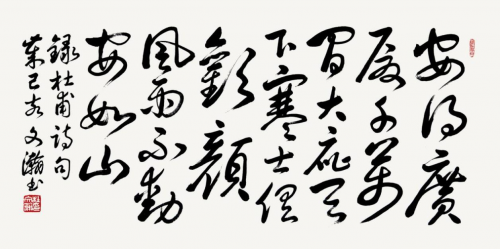 安得廣
厦千萬
間大庇天
下寒士俱
歡顔
風雨不動
安如山
録杜甫詩句
歲己亥文瀚書